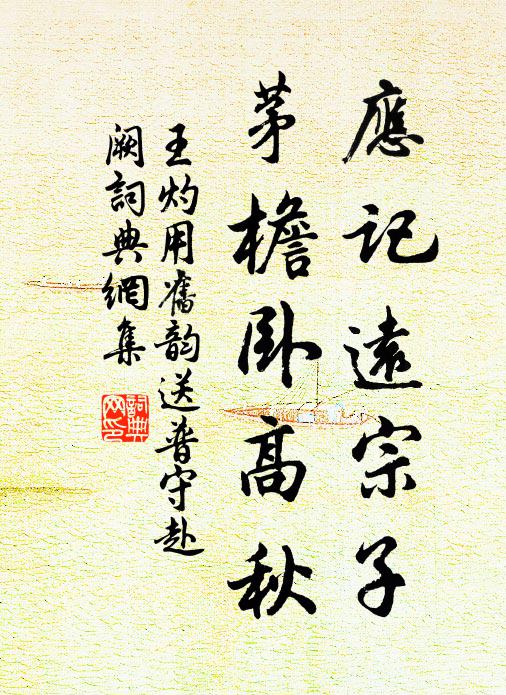 應記遠宗子
茅檐卧高秋
王灼用舊韵送普守赴
闕詞典網集
詞典
网印